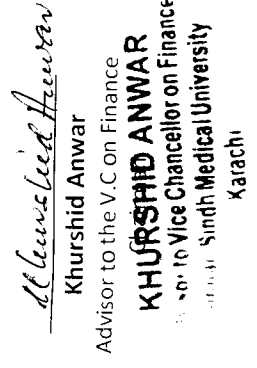 Khurshid Anwar
Khurshid Anwar
Advisor to the V.C on Finance
KHURSHID ANWAR
to Vice Chancellor on Finance
Sindh Medical University
Karachi